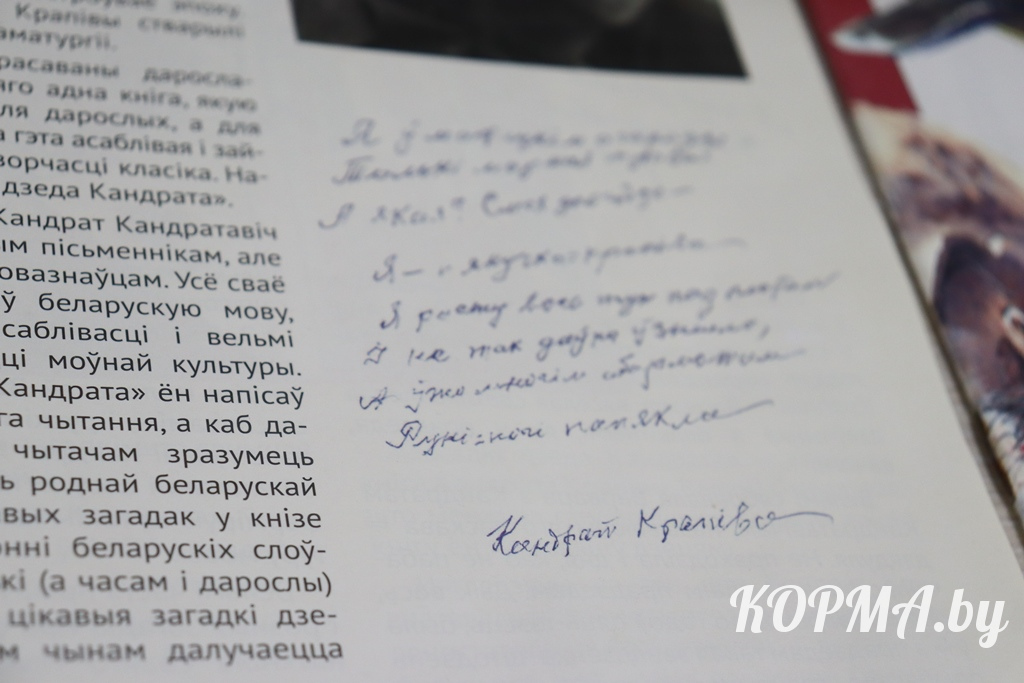 Крапівы стварылі
аматургіі.
расаваны даросла-
яго адна кніга, якую
ля дарослых, а для
а гэта асаблівая і зай-
ворчасці класіка. На-
дзеда Кандрата».
Кандрат Кандратавіч
ым пісьменнікам, але
овазнаўцам. Усё сваё
ў беларускую мову,
саблівасці і вельмі
ці моўнай культуры.
Кандрата» ён напісаў
га чытання, а каб да-
чытачам зразумець
ь роднай беларускай
авых загадак у кнізе
онні беларускіх слоў-
кі (а часам і дарослы)
цікавыя загадкі дзе-
м чынам далучаецца
Я ў
А якая?
Я — крапіва —
Я расту вось тут пад плотам
І не так даўно ўзышла,
А ўжо многім абармотам
Рукі-ногі папякла
Кандрат Крапіва
КОРМА.by